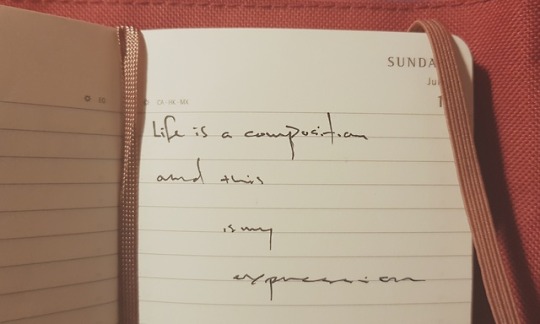 SUNDA
Ju
1
CA HK MX
Life is a composition
and this
is my
expression